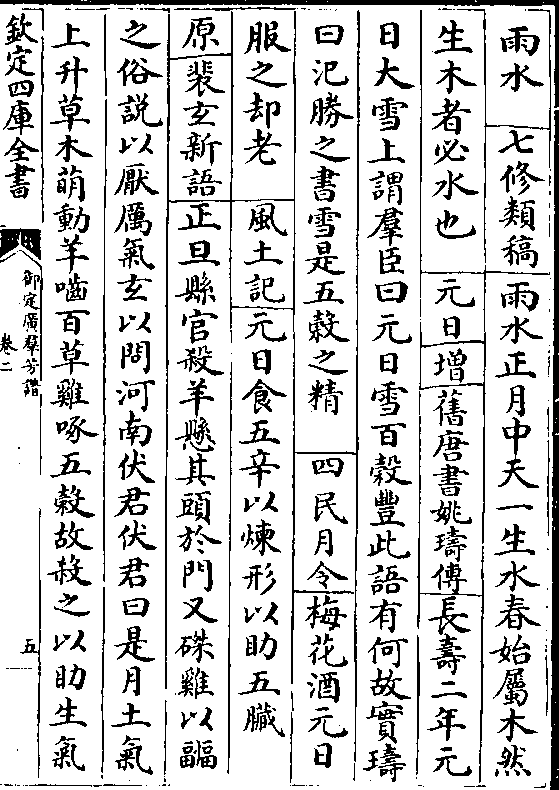 雨水　七修類稿雨水正月中天一生水春始屬木然
生木者必水也　元日增舊唐書姚璹傳長壽二年元
日大雪上謂羣臣曰元日雪百穀豐此語有何故實璹
曰氾勝之書雪是五榖之精　四民月令梅花酒元日
服之却老　風土記元日食五辛以煉形以助五臟
原裴玄新語正旦縣官殺羊懸其頭於門又磔雞以副
之俗説以厭厲氣玄以問河南伏君伏君曰是月土氣
上升草木萌動羊嚙百草雞啄五榖故殺之以助生氣
欽定四庫全書
御定廣羣芳譜
卷二
五